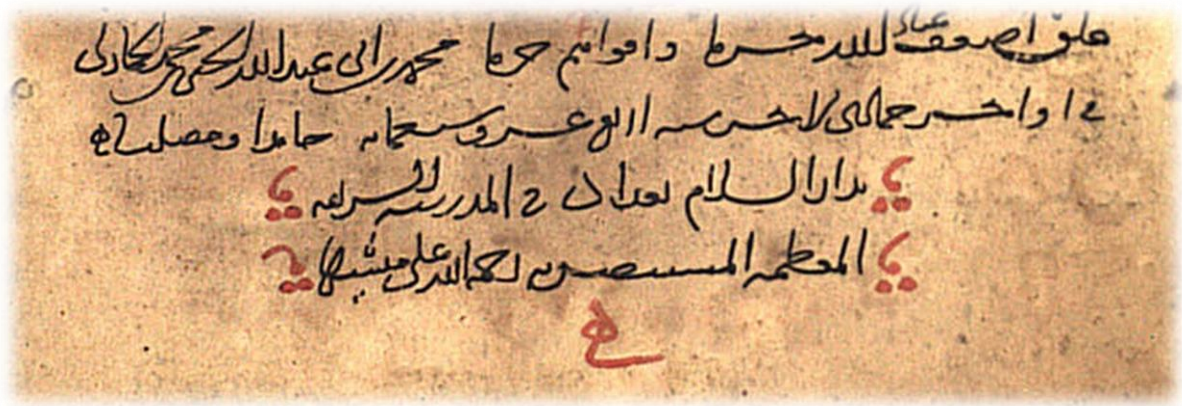 علقه أضعف عباد الله جرما وأقواهم جرما محمد بن أبي عبد الله محمد
في أواخر جمادى الآخر سنة أربع عشر وسبعمائة حامدا ومصليا ه
بدار السلام بغداد في المدرسة الشريفة
المعظمة المستنصرية رحمة الله على منشيها